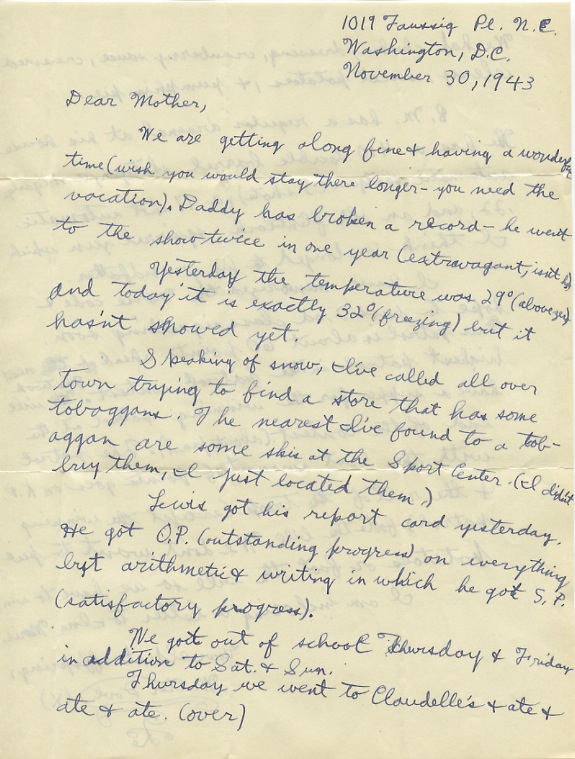 1019 Taussig Pl. N.E.
Washington, D.C.
November 30, 1943
Dear Mother,
We are getting along fine & having a wonderful
time (wish you would stay there longer - you need the
vacation). Daddy has broken a record - he went
to the show twice in one year (extravagant, isn't he)
Yesterday the temperature was 29° (above zero)
and today it is exactly 32° (freezing) but it
hasn't snowed yet.
Speaking of snow, I've called all over
town trying to find a store that has some
tobaggans. The nearest I've found to a tob-
aggan are some skis at the Sport Center. (I didn't
buy them, I just located them.)
Lewis got his report card yesterday.
He got O.P. (outstanding progress) on everything
but arithmetic & writing in which he got S.P.
(satisfactory progress).
We got out of school Thursday & Friday
in addition to Sat. & Sun.
Thursday we went to Claudelle's & ate &
ate & ate. (over)